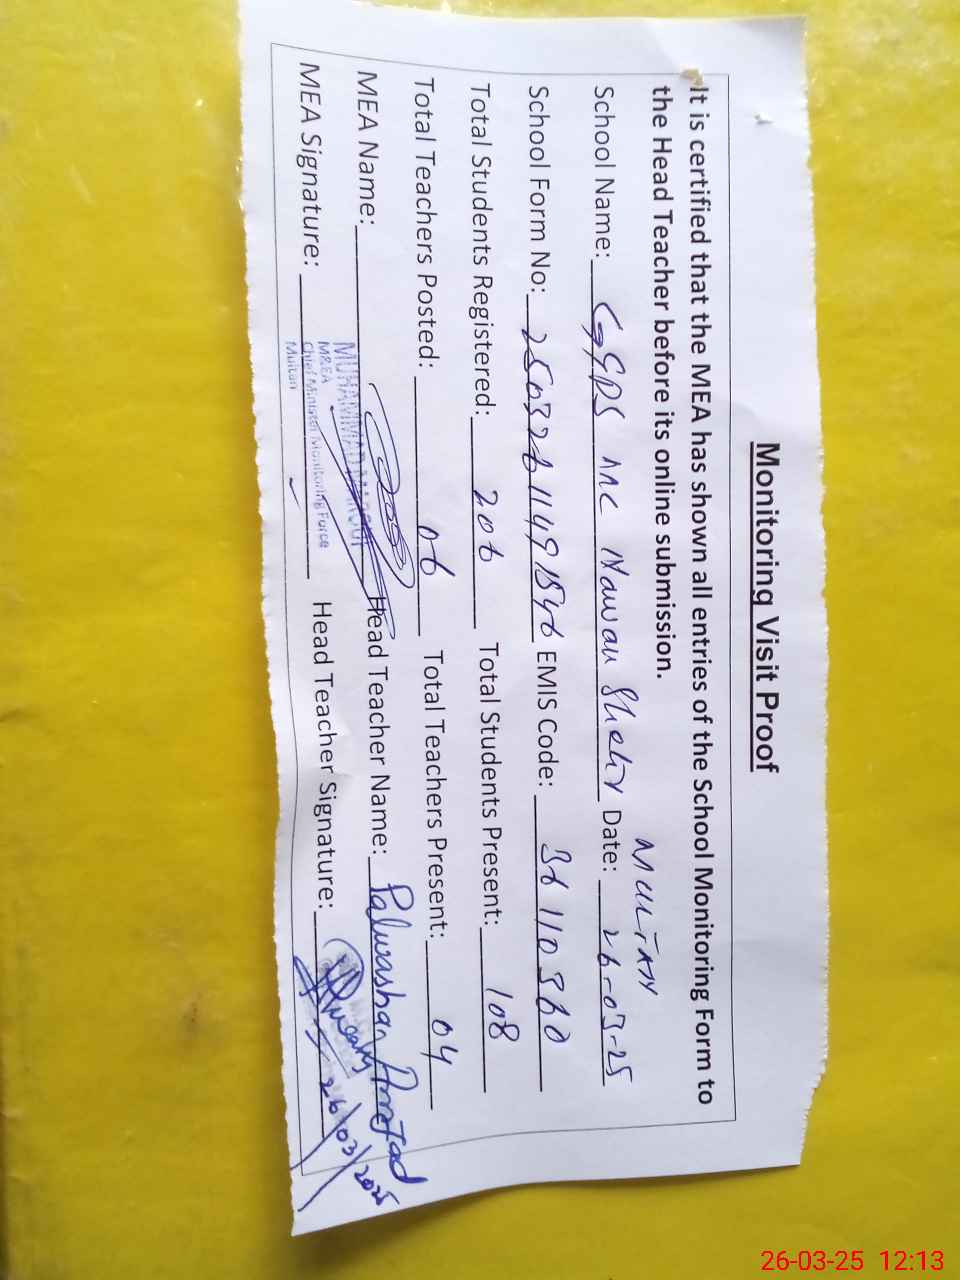 Monitoring Visit Proof
It is certified that the MEA has shown all entries of the School Monitoring Form to
the Head Teacher before its online submission.
MULTAN
School Name: GGPS MC Nawan Shehr Date: 26-03-25
School Form No: EMIS Code: 36110360
Total Students Registered: 206 Total Students Present: 108
Total Teachers Posted: 06 Total Teachers Present: 04
MEA Name: Head Teacher Name: Palwashan Amjad
MUHAMMAD
M&EA
Chief Minister Monitoring Force
Multan
MEA Signature: Head Teacher Signature:
26/03/2025
26-03-25 12:13